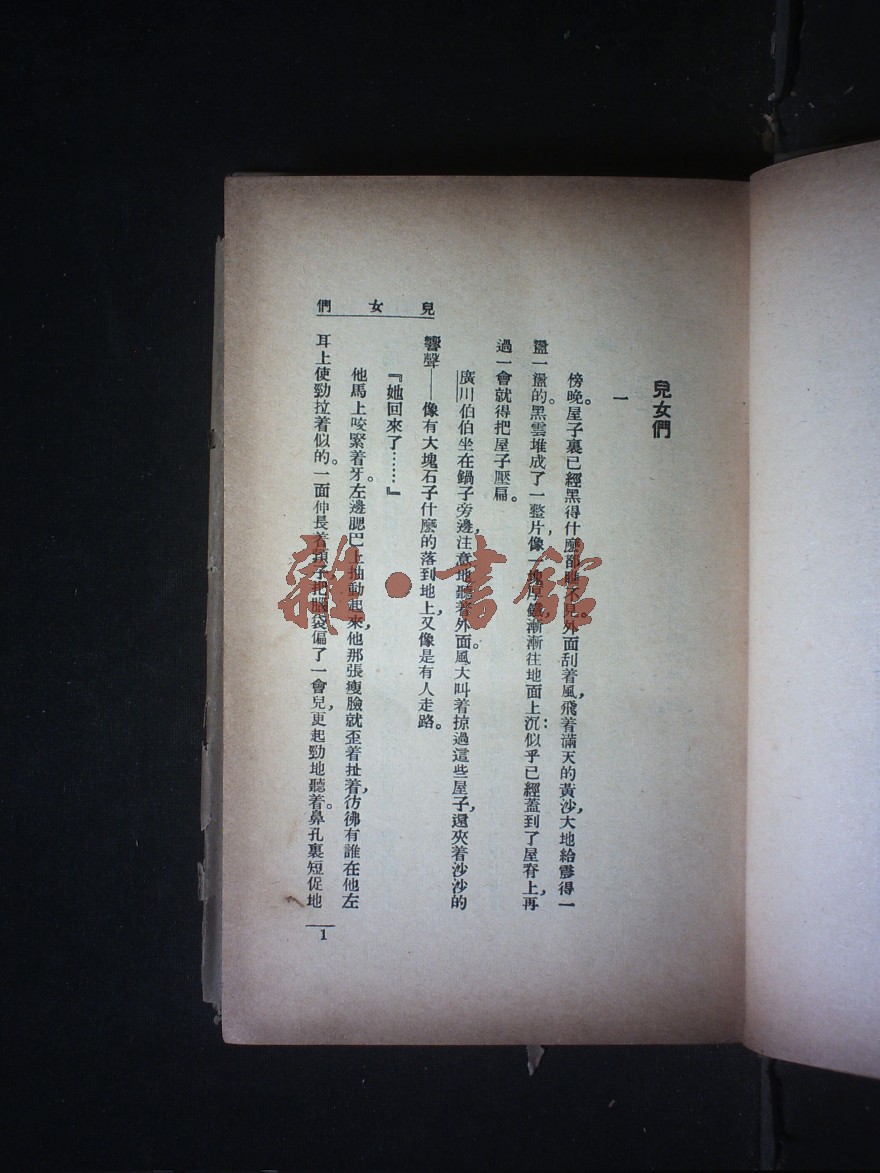 兒女們
一
傍晚。屋子裏已經黑得什麼都瞧不見。外面刮着風，飛着滿天的黃沙，大地給霧得一
盪一盪的。黑雲堆成了一整片，像一塊厚鐵，漸漸往地面上沉：似乎已經蓋到了屋脊上，再
過一會就得把屋子壓扁。
廣川伯伯坐在鍋子旁邊，注意地聽着外面。風大叫着掠過這些屋子，還夾着沙沙的
響聲——像有大塊石子什麼的落到地上，又像是有人走路。
『她回來了……』
他馬上咬緊着牙。左邊腮巴上抽動起來，他那張瘦臉就歪着扯着，彷彿有誰在他左
耳上使勁拉着似的。一面伸長着頸子把腦袋偏了一會兒，更起勁地聽着。鼻孔裏短促地
兒女們
1
雜·書館